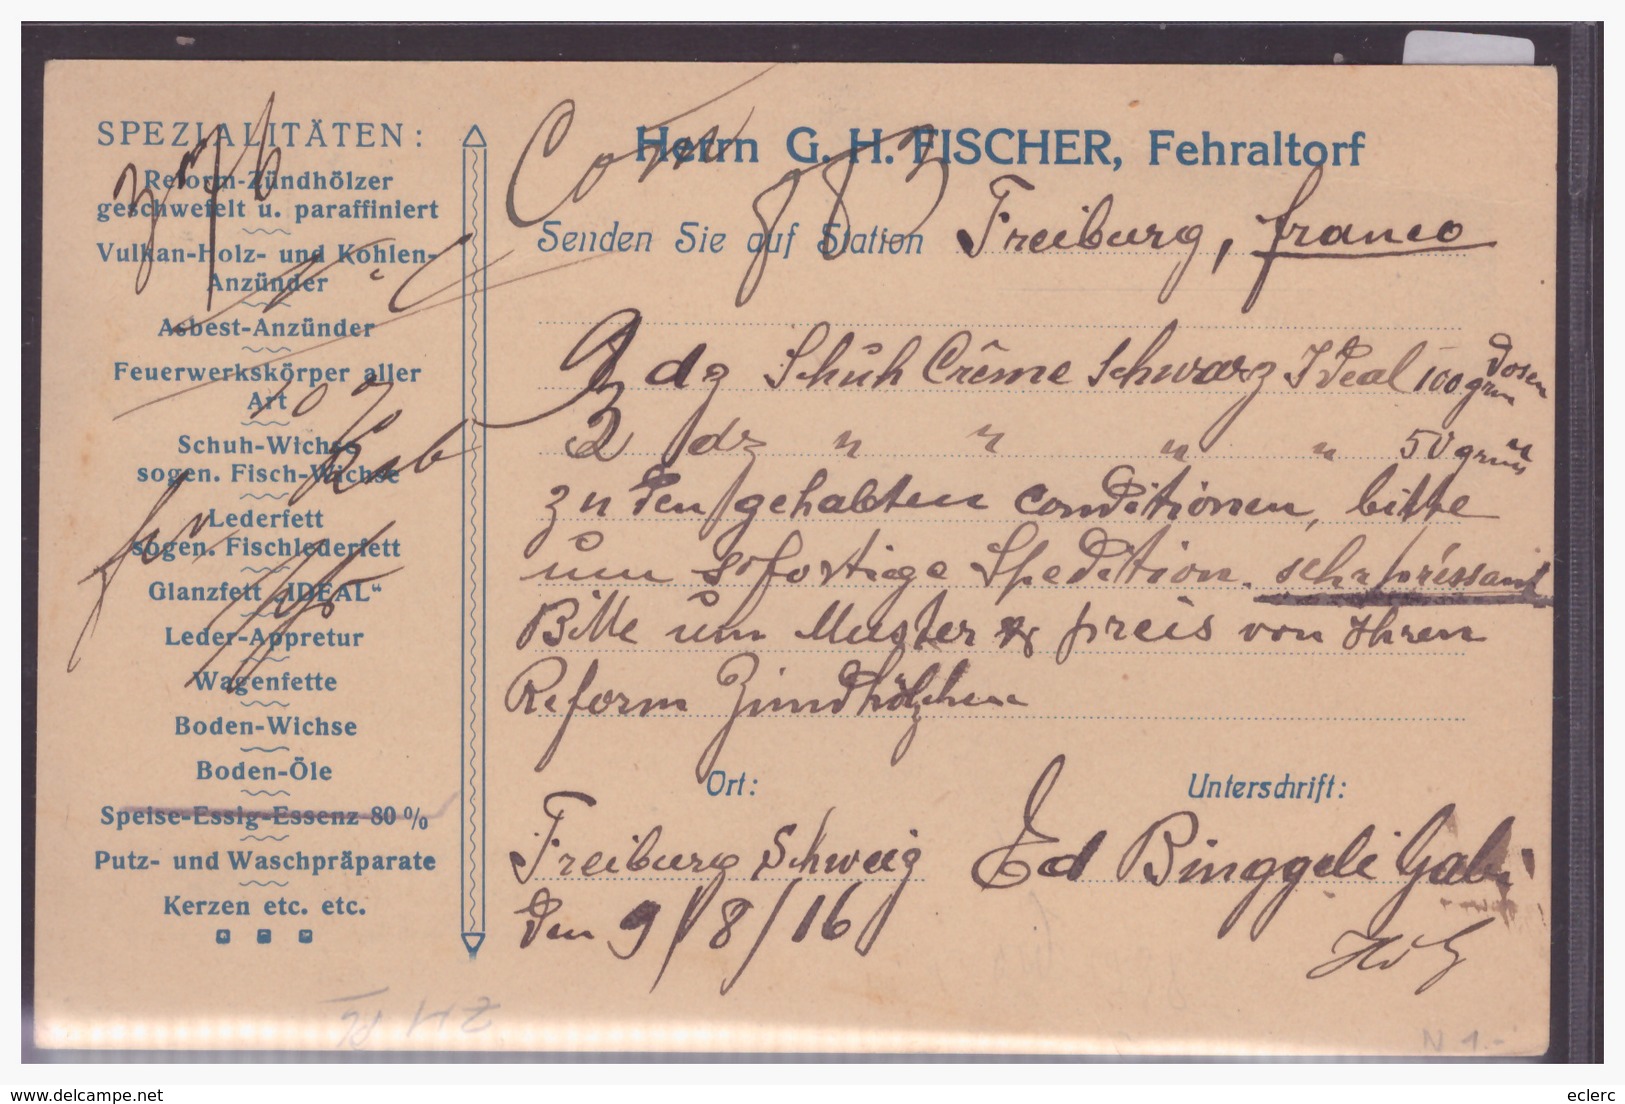 SPEZIALITÄTEN:
Reform-Zündhölzer
geschwefelt u. paraffiniert
Vulkan-Holz- und Kohlen-
Anzünder
Asbest-Anzünder
Feuerwerkskörper aller
Art
Schuh-Wichse
sogen. Fisch-Wichse
Lederfett
sogen. Fischlederfett
Glanzfett „IDEAL“
Leder-Appretur
Wagenfette
Boden-Wichse
Boden-Öle
Speise-Essig-Essenz 80%
Putz- und Waschpräparate
Kerzen etc. etc.
Herrn G. H. FISCHER, Fehraltorf
Senden Sie auf Station Freiburg, franco
2 dz Schuh Crême schwarz Ideal 100 grm Dosen
2 dz " " " " 50 grm "
zu den gehabten conditionen, bitte
um sofortige Spedition. sehr préssant
Bitte um Muster & preis von Ihren
Reform Zündhölzchen
Ort:
Unterschrift:
Freiburg Schweiz
Ed Binggeli
den 9/8/16
N 1.-
eclerc